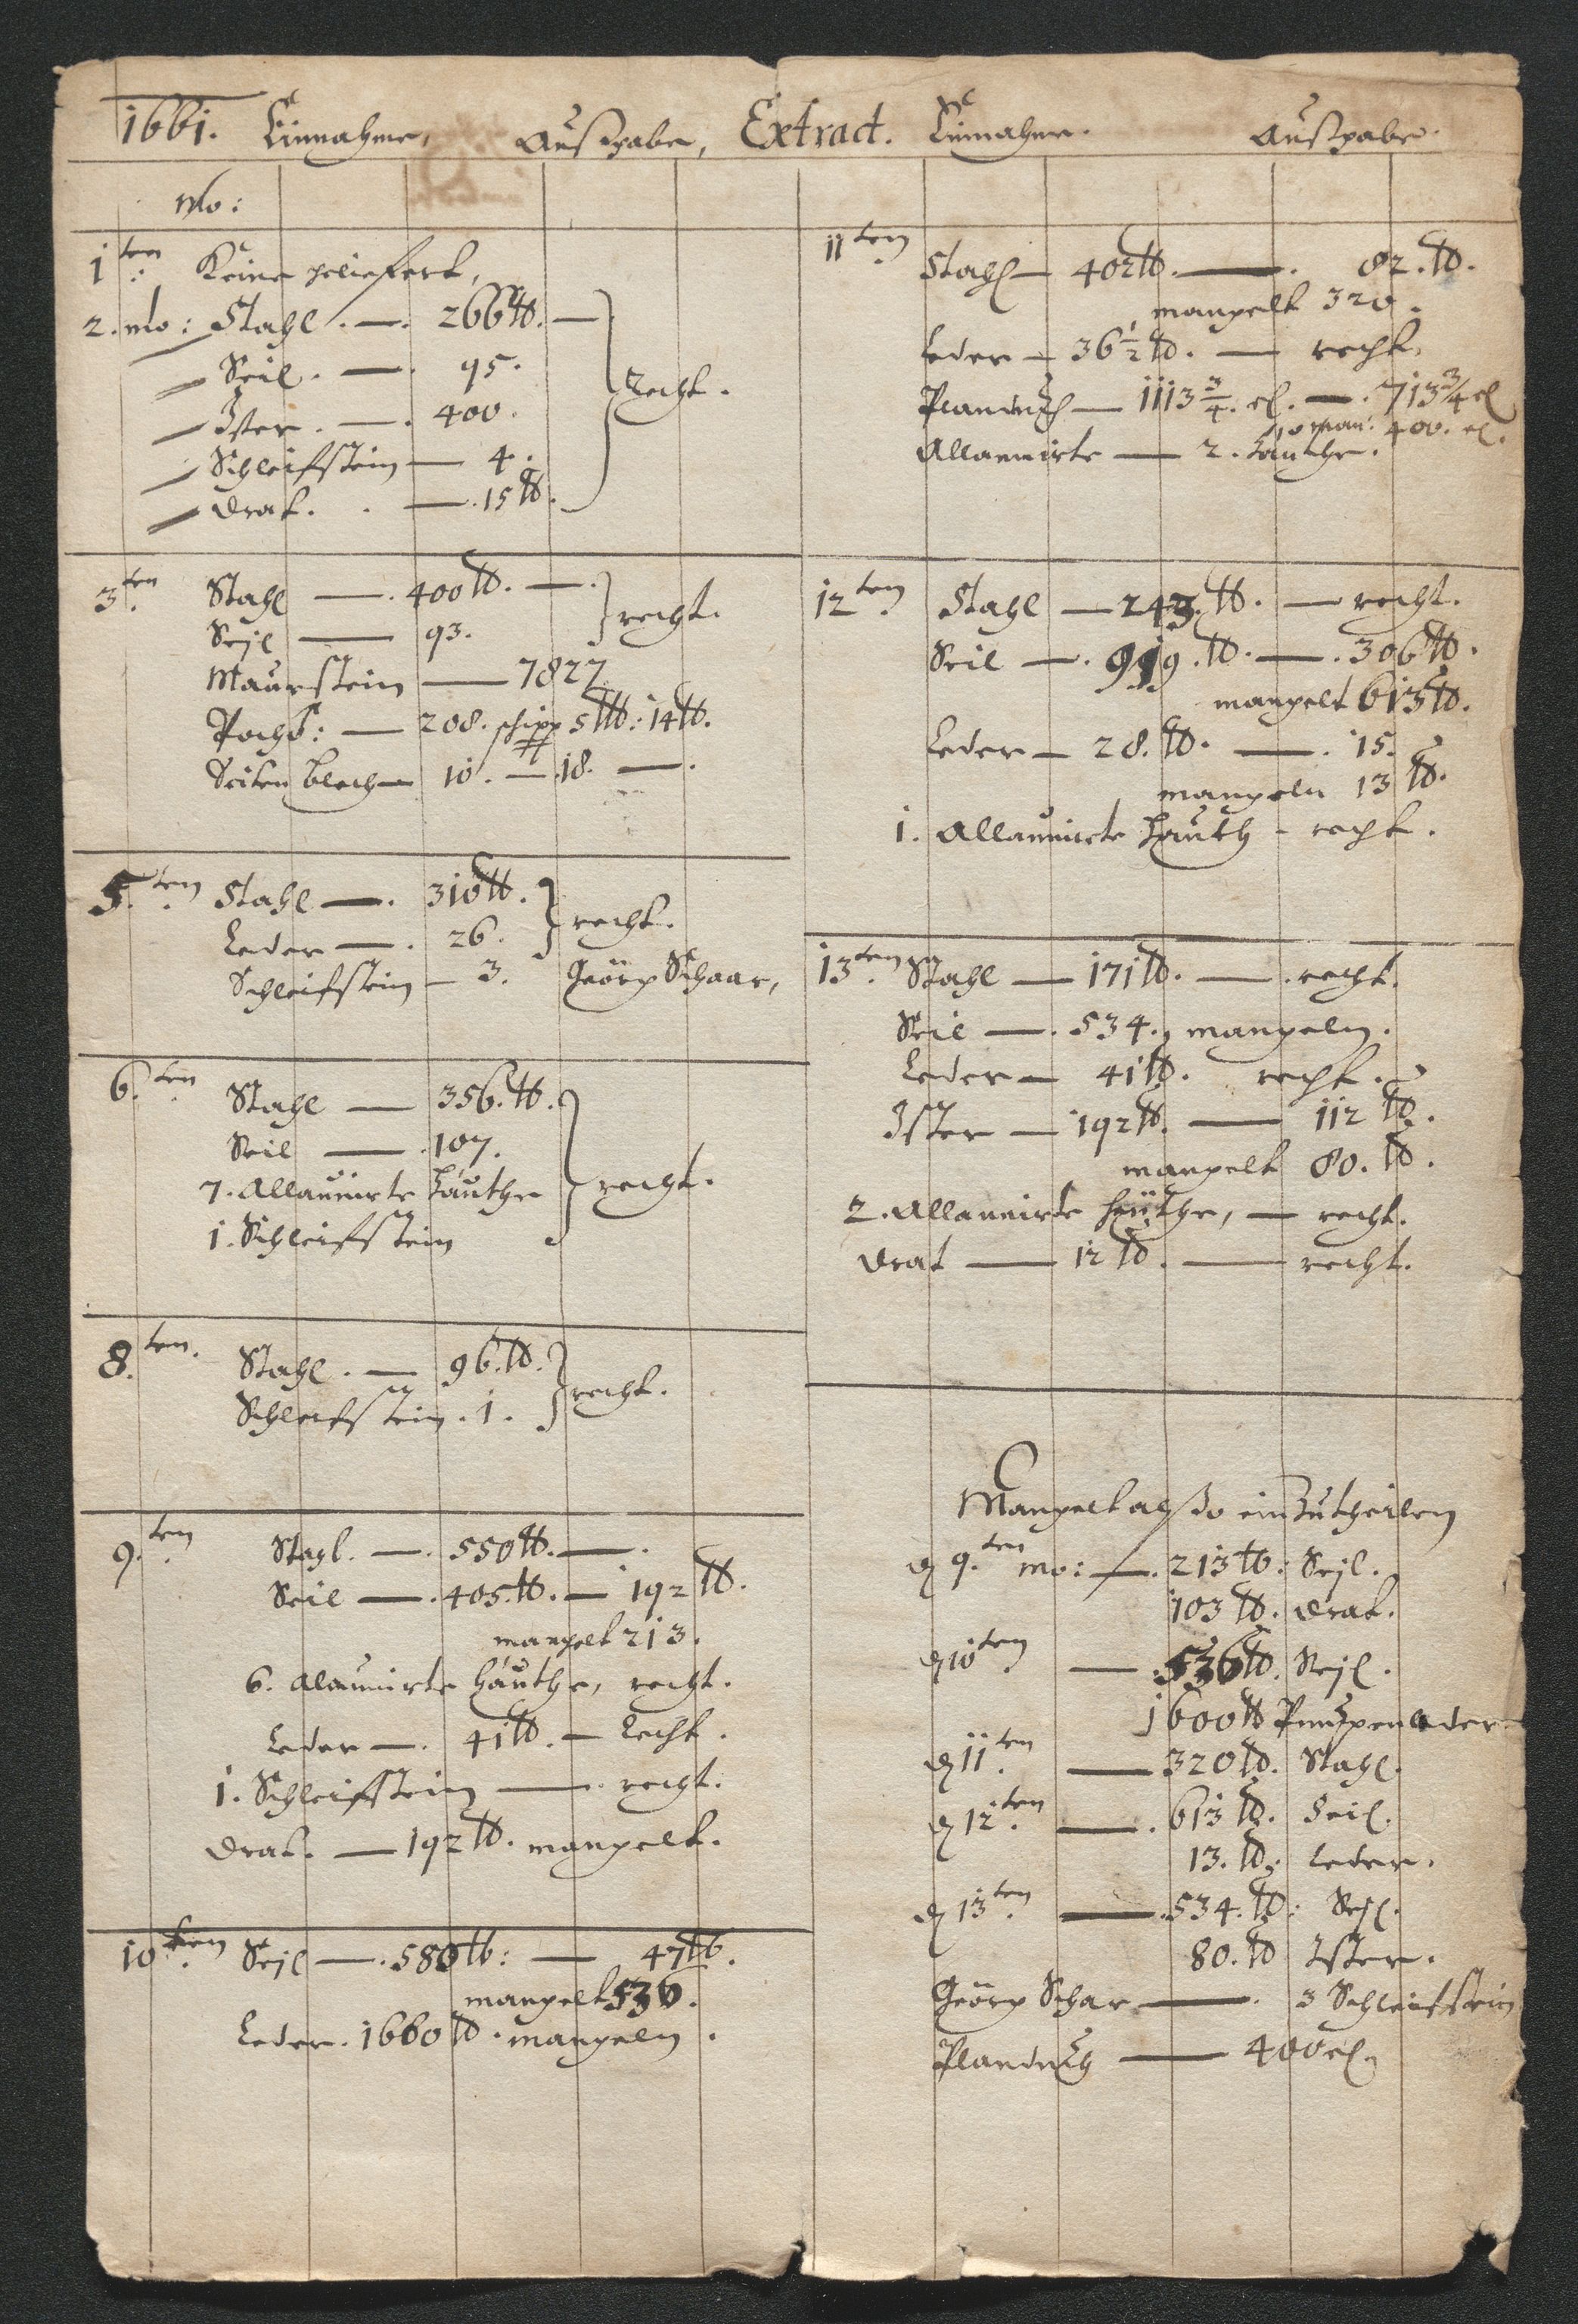 1661. Einnahme, Außgabe, Extract. Einnahme. Außgabe.
mo:
1ten Keine geliefert,
2. mo: Stahl. — 266 ℔. —
Seil. — 95.
Ister. — 400.
Schleifstein — 4.
Drat. — 15 ℔.
Recht.
3ten Stahl — 400 ℔. —
Sejl — 93.
recht.
Maurstein — 7827
— 208. schipp 5 ℔: 14 ℔.
Seiten blech — 10. — 18. —
5ten Stahl — 310 ℔.
Leder — 26.
recht.
Schleifstein — 3. Geörg Schaar,
6.ten Stahl — 356. ℔.
Seil — 107.
7. Allaunirte häuthe
1. Schleifstein
recht.
8.ten. Stahl. — 96. ℔.
Schleifstein. 1.
recht.
9.ten Stahl. — 550 ℔. —
Seil — 405. ℔. — 192 ℔.
mangelt 213.
6. Alaunirte häuthe, recht.
Leder — 41 ℔. — Recht.
1. Schleifstein — recht.
Drat. — 192 ℔. mangelt.
10ten Sejl — 580 ℔: — 47 ℔.
mangelt 536.
Leder. 1660 ℔. mangeln.
11ten Stahl — 402 ℔. — 82. ℔.
mangelt 320.
Leder — 36 1/2 ℔. — recht.
Plantuch — 1113 3/4. el. — 713 3/4 el
man: 400. el.
Allaunirte — 2. häuthe.
12ten Stahl — 243. ℔. — recht.
Seil — 919. ℔. — 306 ℔.
mangelt 613 ℔.
Leder — 28. ℔. — 15.
mangeln 13 ℔.
1. Allaunirte hauth - recht.
13ten Stahl — 171 ℔. — recht.
Seil — 534. mangeln.
Leder — 41 ℔. recht.
Ister — 192 ℔. — 112 ℔.
mangelt 80. ℔.
2. Allaunirte häüthe, — recht.
Drat — 12 ℔. — recht.
Mangelt also ein Zutheilen
d 9.ten mo: — 213 ℔: Sejl.
103 ℔. Drat.
d 10ten — 536 ℔. Sejl.
1600 ℔ Pumpenleder
d 11.ten — 320 ℔. Stahl.
d 12.ten — 613 ℔. Seil.
13. ℔. Leder.
d 13ten — 534. ℔: Sejl.
80. ℔ Ister.
Geörg Schar — 3 Schleifstein
Plantuch — 400 el.